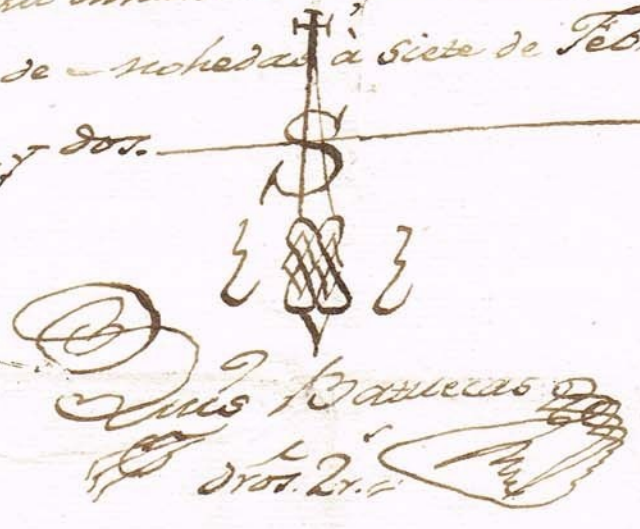 de Mohedas à siete de Feb
y dos.
S
Luis Bazuecas
dros. 2r.